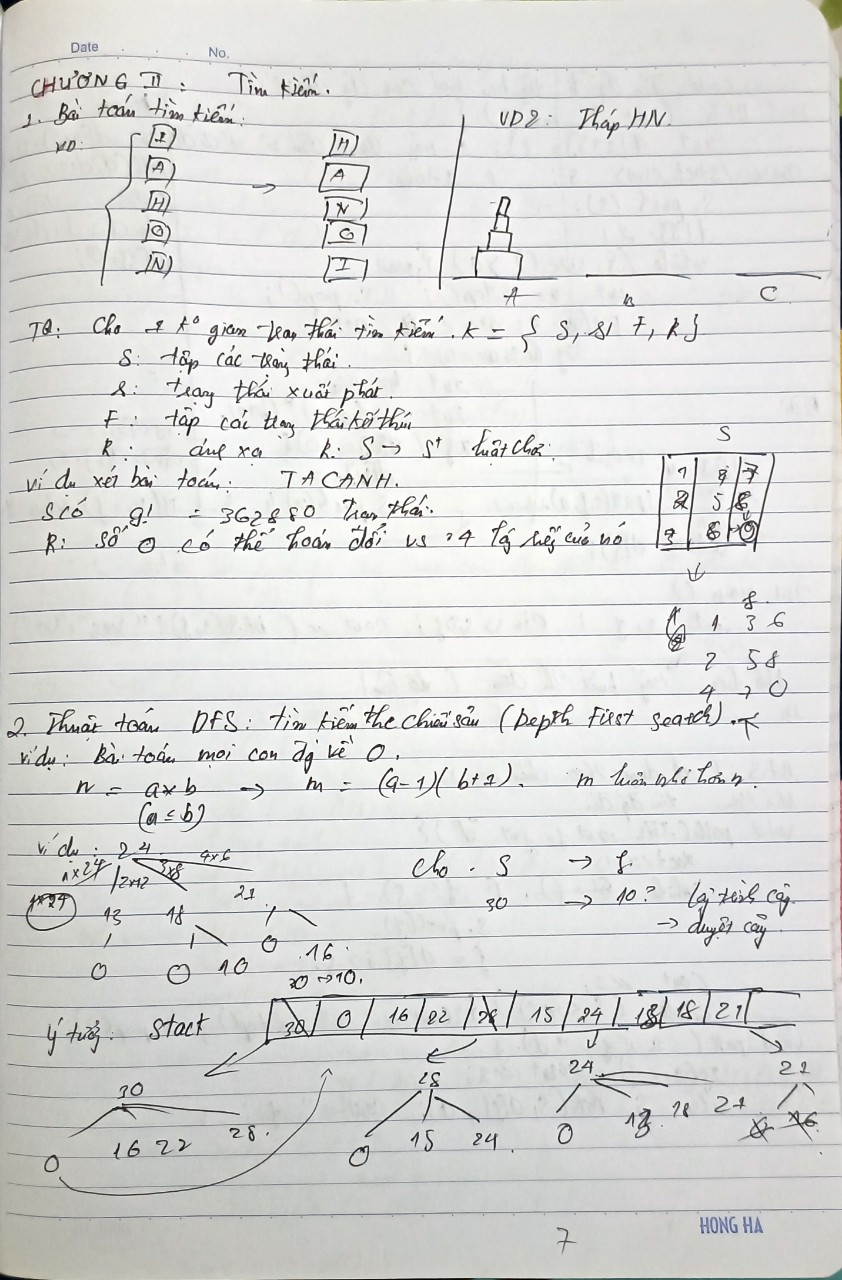 Date No.
CHƯƠNG II : Tìm kiếm.
1. Bài toán tìm kiếm:
VD:
I
A
H
O
N
→
H
A
N
O
I
VD2: Tháp HN.
A B C
TQ: Cho 1 k° gian trạng thái tìm kiếm. K = { S, s, F, R }
S: tập các trạng thái.
s: trạng thái xuất phát.
F: tập các trạng thái kết thúc
R: ánh xạ R: S → S⁺ luật chơi.
ví dụ xét bài toán: TACANH.
S có 9! = 362880 trạng thái.
R: Số 0 có thể hoán đổi vs 4 lg của nó
S
1 4 7
2 5 8
3 6 0
↓
f.
1 3 6
2 5 8
4 7 0
2. Thuật toán DFS: tìm kiếm the chiều sâu (Depth First Search).
ví dụ: Bài toán mọi con đg về 0.
n = a×b → m = (a-1)(b+1). m luôn nhỏ hơn n.
(a ≤ b)
ví dụ: 24
1×24 2×12 3×8 4×6
1×24 13 18 21
0 0 10 0 16
30 → 10.
Cho S → f.
30 → 10?
→ duyệt cây
Ý tưởng: Stack 30 0 16 22 28 15 24 13 18 21
30
0 16 22 28.
28
0 15 24.
24
0 13 18 21
21
0 16
7
HONG HA